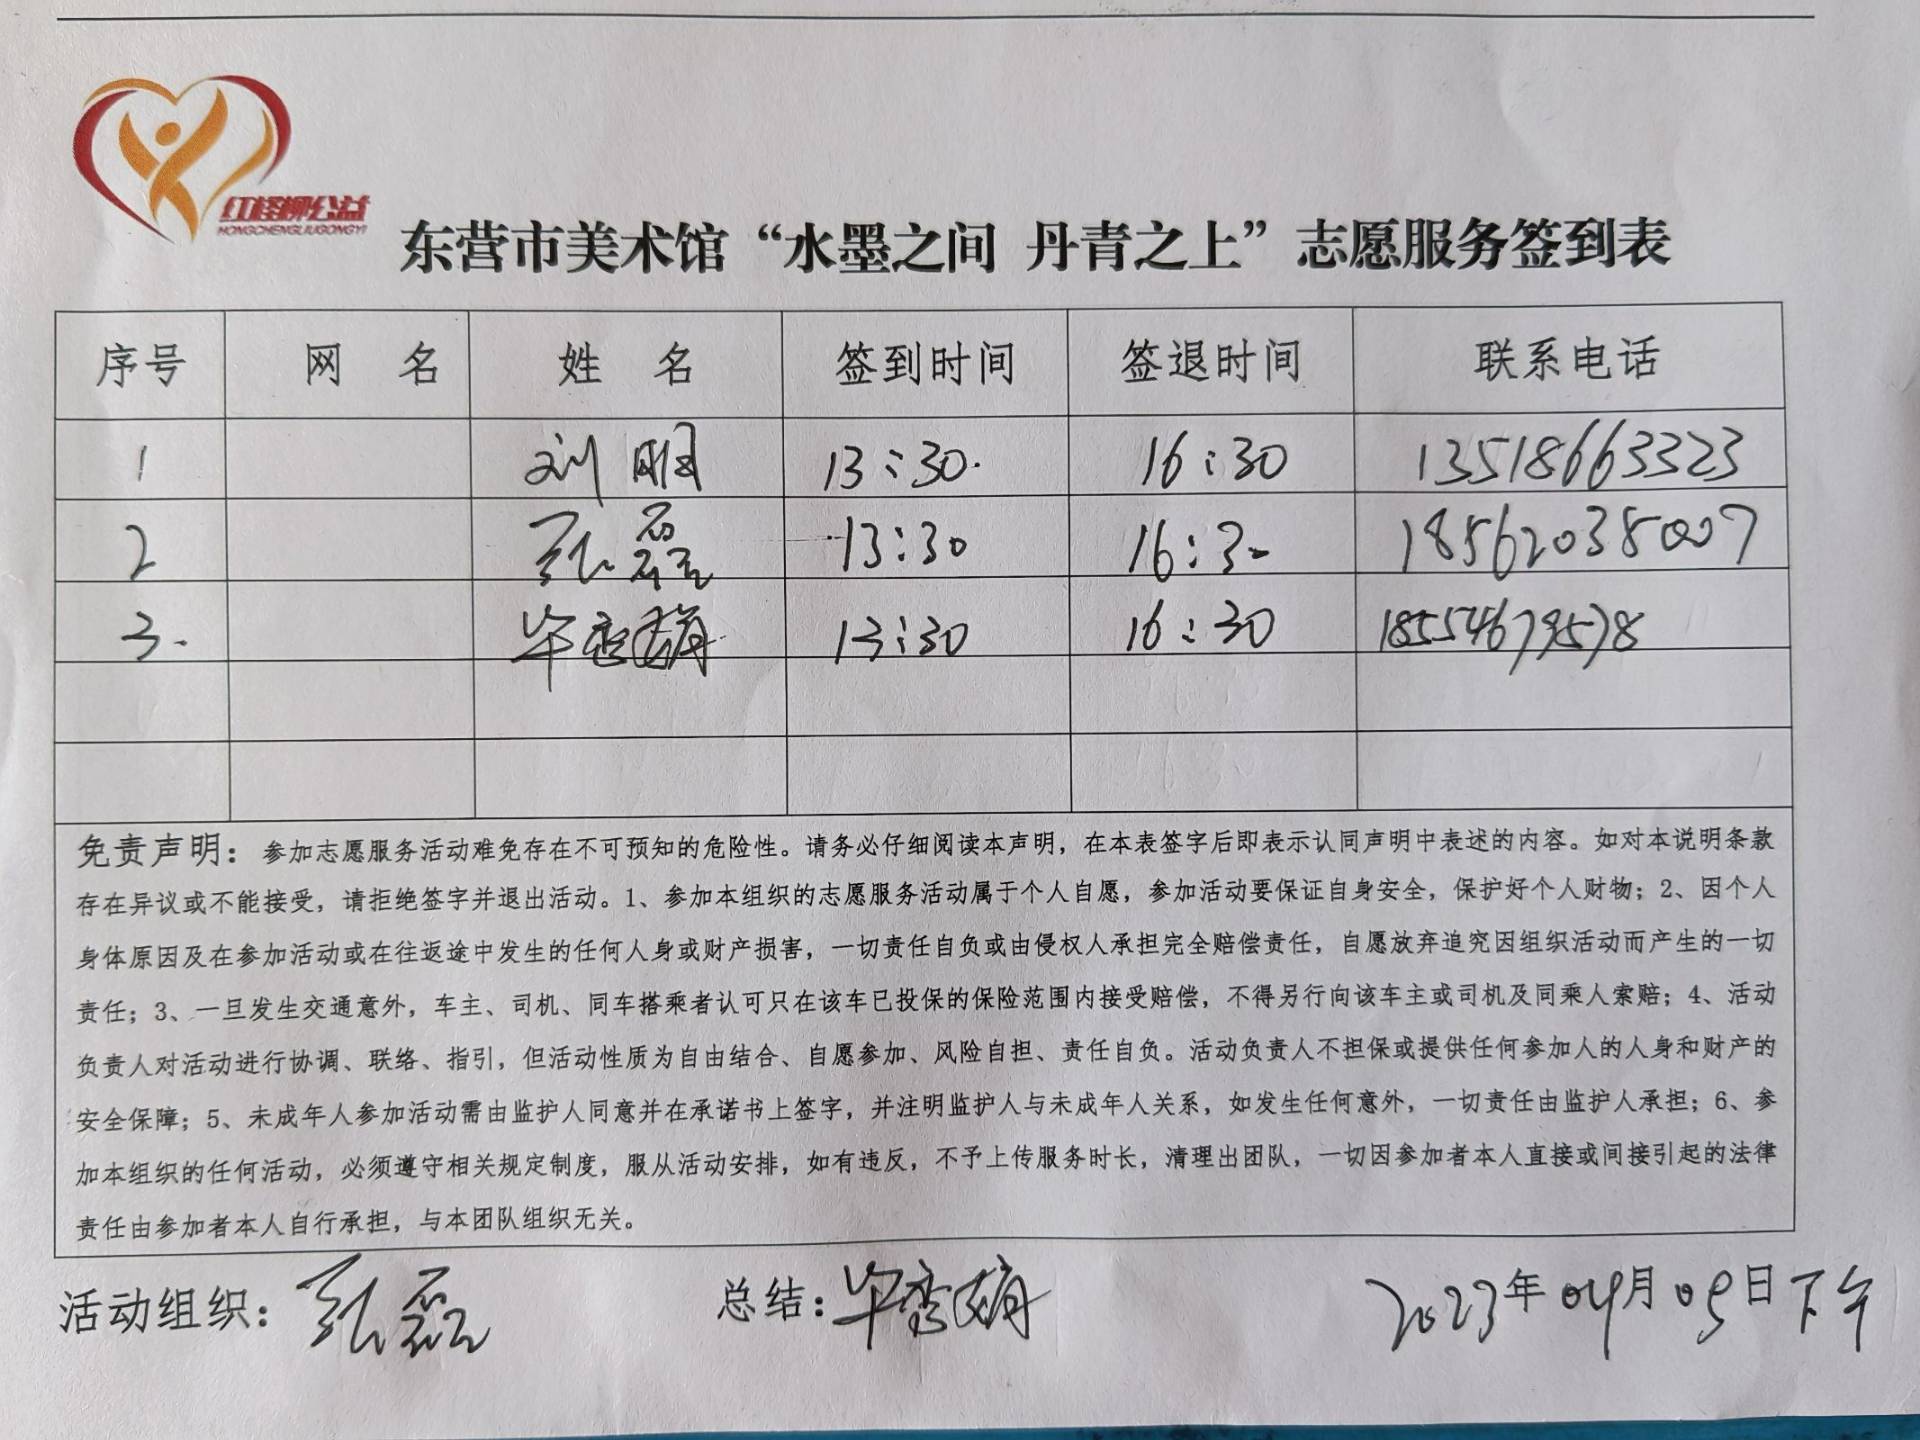 红柽柳公益
HONGCHENGLIUGONGYI
东营市美术馆“水墨之间 丹青之上”志愿服务签到表
序号 网 名 姓 名 签到时间 签退时间 联系电话
1 刘 13:30 16:30 13518663323
2 张磊 13:30 16:30 18562038007
3. 毕 13:30 16:30 18554679578
免责声明：参加志愿服务活动难免存在不可预知的危险性。请务必仔细阅读本声明，在本表签字后即表示认同声明中表述的内容。如对本说明条款
存在异议或不能接受，请拒绝签字并退出活动。1、参加本组织的志愿服务活动属于个人自愿，参加活动要保证自身安全，保护好个人财物；2、因个人
身体原因及在参加活动或在往返途中发生的任何人身或财产损害，一切责任自负或由侵权人承担完全赔偿责任，自愿放弃追究因组织活动而产生的一切
责任；3、一旦发生交通意外，车主、司机、同车搭乘者认可只在该车已投保的保险范围内接受赔偿，不得另行向该车主或司机及同乘人索赔；4、活动
负责人对活动进行协调、联络、指引，但活动性质为自由结合、自愿参加、风险自担、责任自负。活动负责人不担保或提供任何参加人的人身和财产的
安全保障；5、未成年人参加活动需由监护人同意并在承诺书上签字，并注明监护人与未成年人关系，如发生任何意外，一切责任由监护人承担；6、参
加本组织的任何活动，必须遵守相关规定制度，服从活动安排，如有违反，不予上传服务时长，清理出团队，一切因参加者本人直接或间接引起的法律
责任由参加者本人自行承担，与本团队组织无关。
活动组织：张磊 总结：毕 2023年04月05日下午